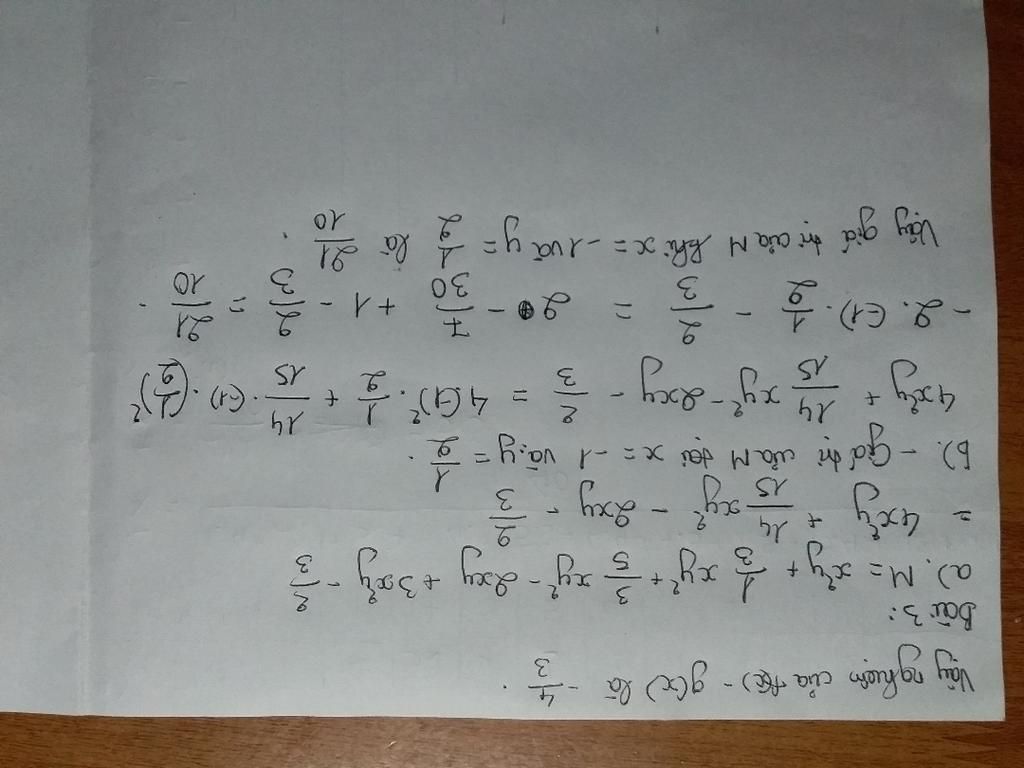 Vậy nghiệm của f(x) - g(x) là - 4/3 .
Bài 3:
a). M = x²y + 1/3 xy² + 3/5 xy² - 2xy + 3x²y - 2/3
= 4x²y + 14/15 xy² - 2xy - 2/3
b) - Giá trị của M tại x = -1 và y = 1/2 .
4x²y + 14/15 xy² - 2xy - 2/3 = 4(-1)² . 1/2 + 14/15 . (-1) . (1/2)²
- 2. (-1) . 1/2 - 2/3 = 2 - 7/30 + 1 - 2/3 = 21/10 .
Vậy giá trị của M khi x = -1 và y = 1/2 là 21/10 .